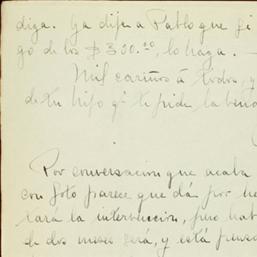 diga. Ya dije a Pablo que si
go de los $300.00, lo haga.
Mil cariños á todos, y
de tu hijo q' te pide la bend
Por conversacion que acaba
con Soto parece que dá por he
tará la intervencion, pero hab
de dos meses será, y está pens